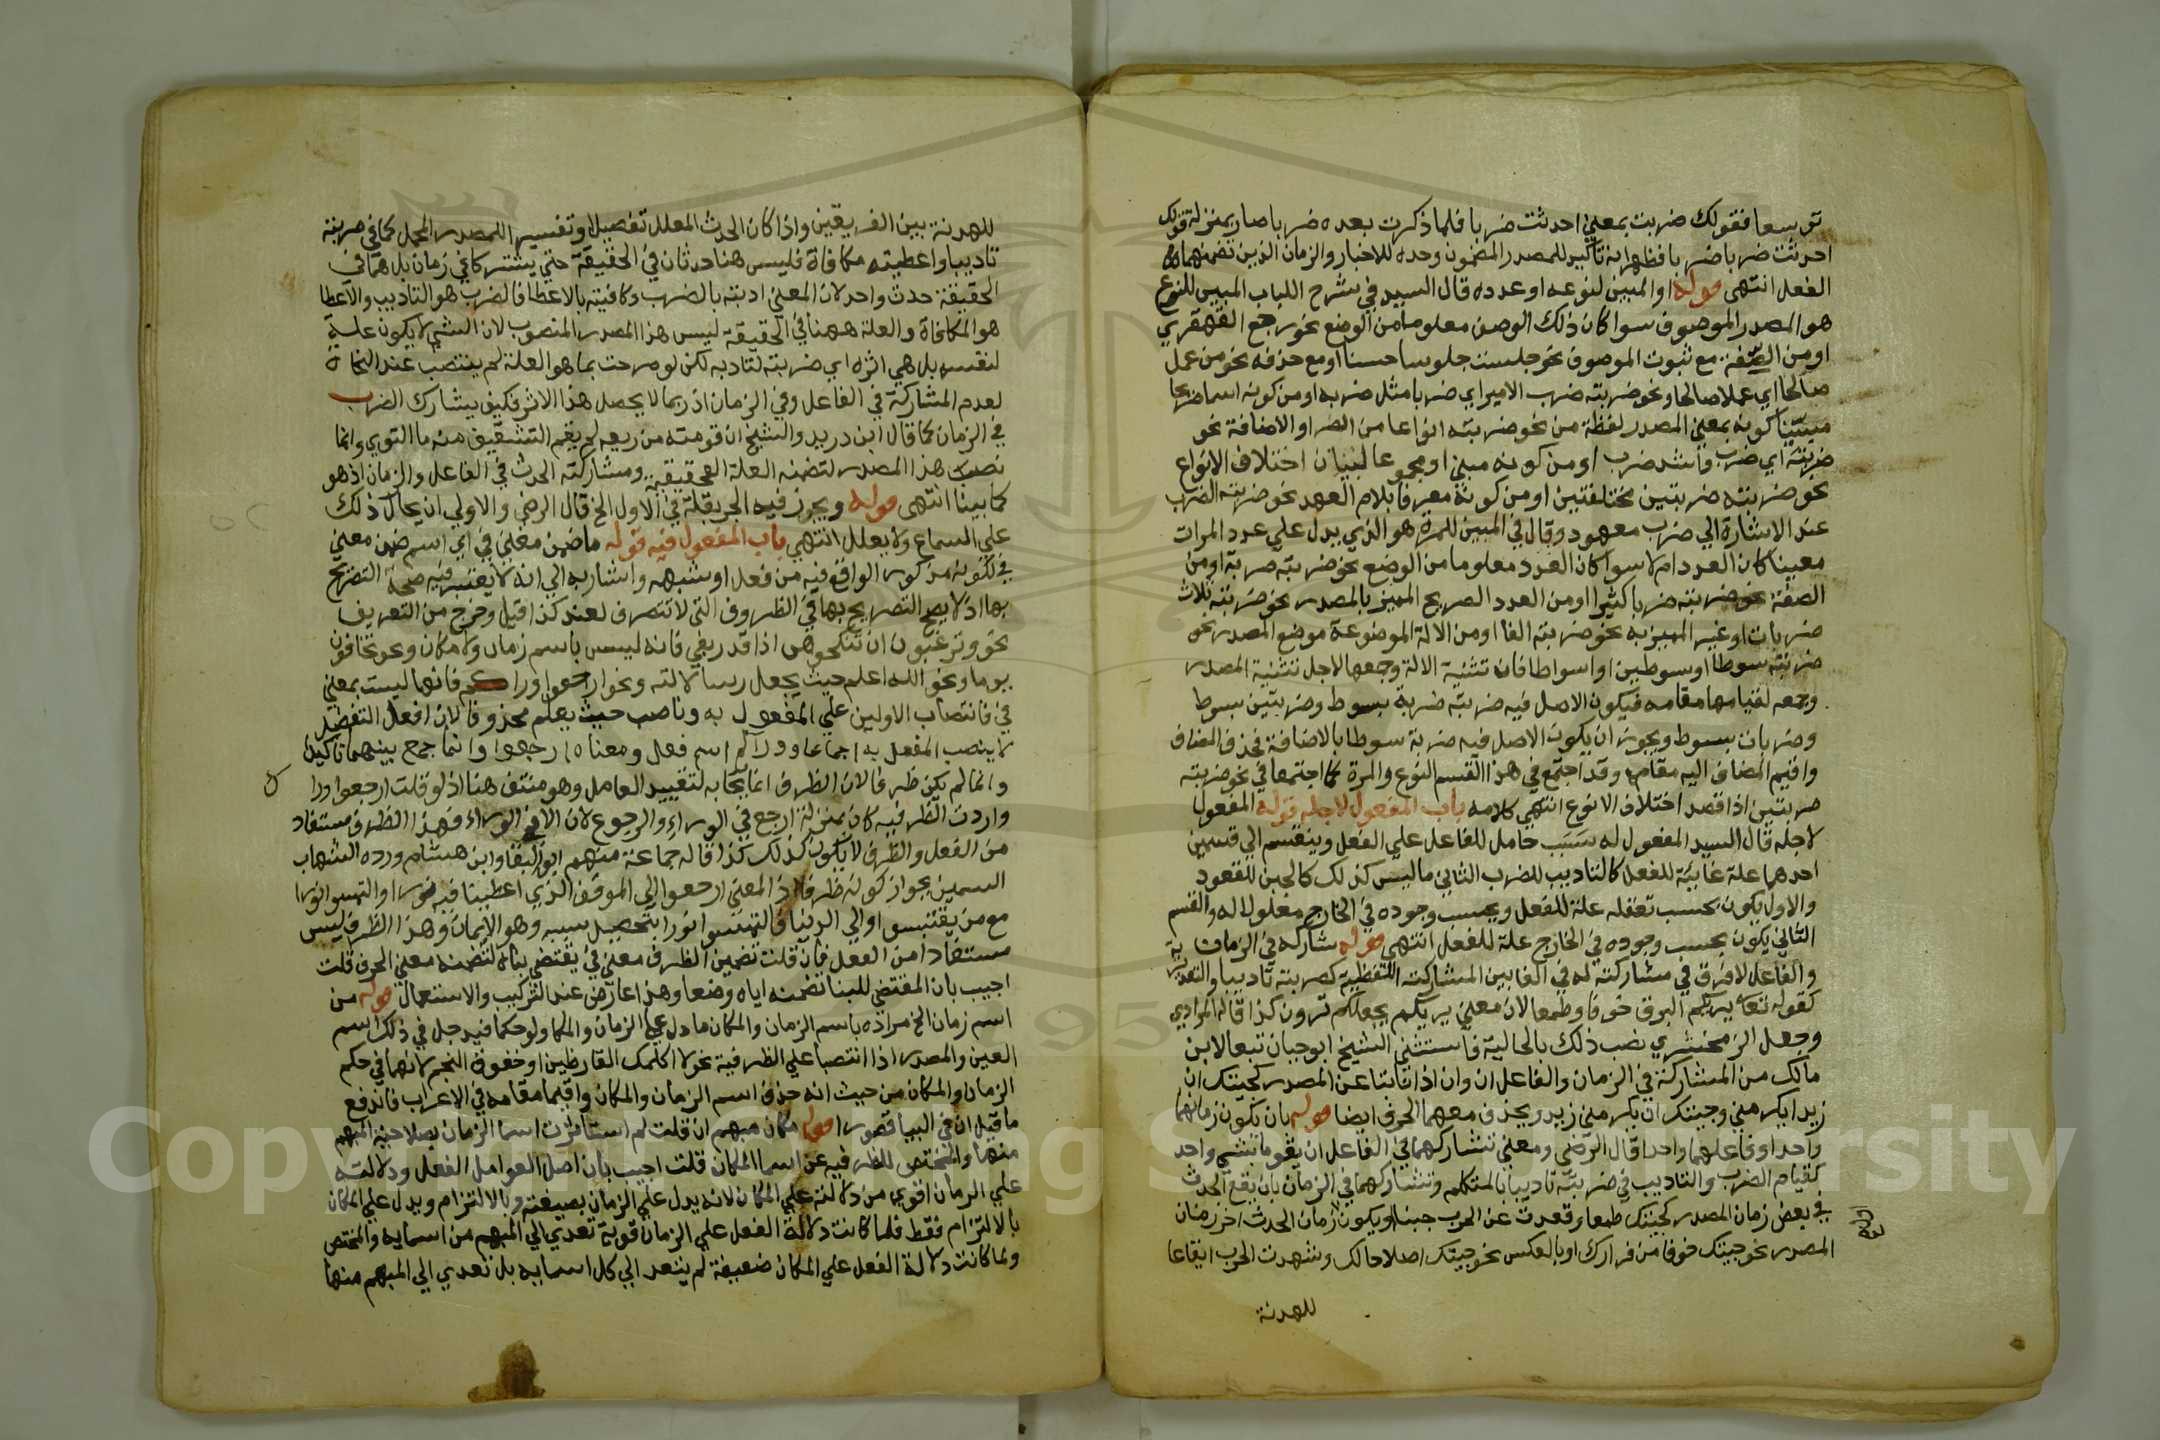 توسعا فقولك ضربت بمعني احدثت ضربا فلما ذكرت بعده ضربا صار بمنزلة قولك
احدثت ضربا ضربا فظهر انه تاكيد للمصدر المضمون وحده للاخبار والزمان الذين تضمنهما
الفعل انتهى قوله او المبين لنوعه او عدده قال السيد في شرح اللباب المبين للنوع
هو المصدر الموصوف سوا كان ذلك الوصف معلوما من الوضع نحو رجع القهقري
او من الصفة مع ثبوت الموصوف نحو جلست جلوسا حسنا او مع حذفه نحو من عمل
صالحا اي عملا صالحا ونحو ضربته ضرب الامير اي ضربا مثل ضربه او من كونه اسما صريحا
مبينا كونه بمعني المصدر لفظة من نحو ضربته انواعا من الضرب او الاضافة نحو
ضربته اي ضرب واشد ضرب او من كونه مثني او مجموعا لبيان اختلاف الانواع
نحو ضربته ضربتين مختلفتين او من كونه معرفا بلام العهد نحو ضربته الضرب
عند الاشارة الي ضرب معهود وقال في المبين للمرة هو الذي يدل علي عدد المرات
معينا كان العدد ام لا سوا كان العدد معلوما من الوضع نحو ضربته ضربة او من
الصفة نحو ضربته ضربا كثيرا او من العدد الصريح المميز بالمصدر نحو ضربته ثلاث
ضربات او غير المميز به نحو ضربته الفا او من الالة الموضوعة موضع المصدر نحو
ضربته سوطا او سوطين او اسواطا فان تثنية الالة وجمعها لاجل تثنية المصدر
وجمعه لقيامها مقامه فيكون الاصل فيه ضربته ضربة بسوط وضربتين بسوط
وضربات بسوط ويجوز ان يكون الاصل فيه ضربة سوط بالاضافة فحذف المضاف
واقيم المضاف اليه مقامه وقد اجتمع في هذا القسم النوع والمرة كما اجتمعا في نحو ضربته
ضربتين اذا قصد اختلاف الانوع انتهي كلامه باب المفعول لاجله قوله المفعول
لاجله قال السيد المفعول له سبب حامل للفاعل علي الفعل وينقسم الي قسمين
احدهما علة غائية للفعل كالتاديب للضرب الثاني ما ليس كذلك كالجبن للقعود
والاول يكون بحسب تعقله علة للفعل وبحسب وجوده في الخارج معلولا له والقسم
الثاني يكون بحسب وجوده في الخارج علة للفعل انتهى قوله شاركه في الزمان
والفاعل لا فرق في مشاركته له في الفاعل بين المشاركة اللفظية كضربته تاديبا والتقديرية
كقوله تعا يريكم البرق خوفا وطمعا لان معني يريكم يجعلكم ترون كذا قاله المرادي
وجعل الزمخشري نصب ذلك بالحالية فاستثني الشيخ ابو حيان تبعا لابن
مالك من المشاركة في الزمان والفاعل ان وان اذا نابتا عن المصدر كجيتك ان
زيدا يكرمني وجيتك ان يكرمني زيد ويحذف معهما الحرف ايضا قوله بان يكون زمانهما
واحدا وفاعلهما واحدا قال الرضي ومعني تشاركهما في الفاعل ان يقوما بشي واحد
كقيام الضرب والتاديب في ضربته تاديبا بالمتكلم وتشاركهما في الزمان بان يقع الحدث
في بعض زمان المصدر كجيتك طمعا وقعدت عن الحرب جبنا او يكون زمان الحدث اخر زمان
المصدر نحو جيتك خوفا من فرارك او بالعكس نحو جيتك اصلاحا لك وشهدت الحرب ايقاعا
للهدنة
للهدنة بين الفريقين واذا كان الحدث المعلل تفصيلا وتفسيرا للمصدر المجمل كما في ضربته
تاديبا واعطيته مكافاة فليس هنا حدثان في الحقيقة حتي يشتركا في زمان بل هما في
الحقيقة حدث واحد لان المعني ادبته بالضرب وكافيته بالاعطا فالضرب هو التاديب والاعطا
هو المكافاة والعلة ههنا في الحقيقة ليس هذا المصدر المنصوب لان الشي لا يكون علة
لنفسه بل هي اثره اي ضربته لتادبه لكن لو صرحت بما هو العلة لم ينتصب عند النحاة
لعدم المشاركة في الفاعل وفي الزمان اذ ربما لا يحصل هذا الاثر فكيف يشارك الضرب
في الزمان كما قال ابن دريد والشيخ ان قومته من زيغه لم يقم التثقيف منه ما التوي وانما
نصب هذا المصدر لتضمنه العلة الحقيقية ومشاركته الحدث في الفاعل والزمان اذ هو
كما بينا انتهى قوله ويجوز فيه الجر بقلة في الاول الخ قال الرضي والاولي ان يحال ذلك
علي السماع ولا يعلل انتهي باب المفعول فيه قوله ما ضمن معني في اي اسم ضمن معني
في لكونه مذكور الواقع فيه من فعل او شبهه واشار به الي انه لا يعتبر فيه صحة التصريح
بها اذ لا يصح التصريح بها في الظروف التي لا تتصرف لعند كذا قيل وخرج من التعريف
نحو وترغبون ان تنكحوهن اذا قدر بفي فانه ليس باسم زمان ولا مكان ونحو يخافون
يوما ونحو الله اعلم حيث يجعل رسالاته ونحو ارجعوا وراكم فانها ليست بمعني
في فانتصاب الاولين علي المفعول به وناصب حيث يعلم محذوفا لان افعل التفضيل
لا ينصب المفعل به اجماعا ووراكم اسم فعل ومعناه ارجعوا وانما جمع بينهما تاكيدا
وانما لم يكن ظرفا لان الظرف انما يجا به لتقييد العامل وهو منتف هنا اذ لو قلت ارجعوا ورا
واردت الظرفيه كان بمنزلة ارجع في الوراء والرجوع لا في الوراء فهذا الظرف مستفاد
من الفعل والظرف لا يكون كذلك كذا قاله جماعة منهم ابو البقا وابن هشام ورده الشهاب
السمين بجواز كونه ظرفا اذ المعني ارجعوا الي الموقف الذي اعطينا فيه نورا والتمسوا نورا
مع من يقتبس او الي الدنيا فالتمسوا نورا بتحصيل سببه وهو الايمان وهذا الظرف ليس
مستفادا من الفعل فان قلت تضمين الظرف معني في يقتضي بناه لتضمنه معني الحرف قلت
اجيب بان المقتضي للبنا تضمنه اياه وضعا وهذا عارض عند التركيب والاستعمال قوله من
اسم زمان الخ مراده باسم الزمان والمكان ما دل علي الزمان والمكان ولو حكما فيدخل في ذلك اسم
العين والمصدر اذا انتصبا علي الظرفية نحو لا اكلمك القارظين او خفوق النجم لانهما في حكم
الزمان والمكان من حيث انه حذف اسم الزمان والمكان واقيما مقامه في الاعراب فاندفع
ما قيل ان في البيا قصورا قوله مكان مبهم ان قلت لم استاثرت اسما الزمان بصلاحية المبهم
منها والمختص للظرفيه عن اسما المكان قلت اجيب بان اصل العوامل الفعل ودلالته
علي الزمان اقوي من دلالته علي المكان لانه يدل علي الزمان بصيغته وبالالتزام ويدل علي المكان
بالالتزام فقط فلما كانت دلالة الفعل علي الزمان قوية تعدي الي المبهم من اسمايه والمختص
ولما كانت دلالة الفعل علي المكان ضعيفة لم يتعد الي كل اسمايه بل تعدي الي المبهم منها
Copyright © King Saud University